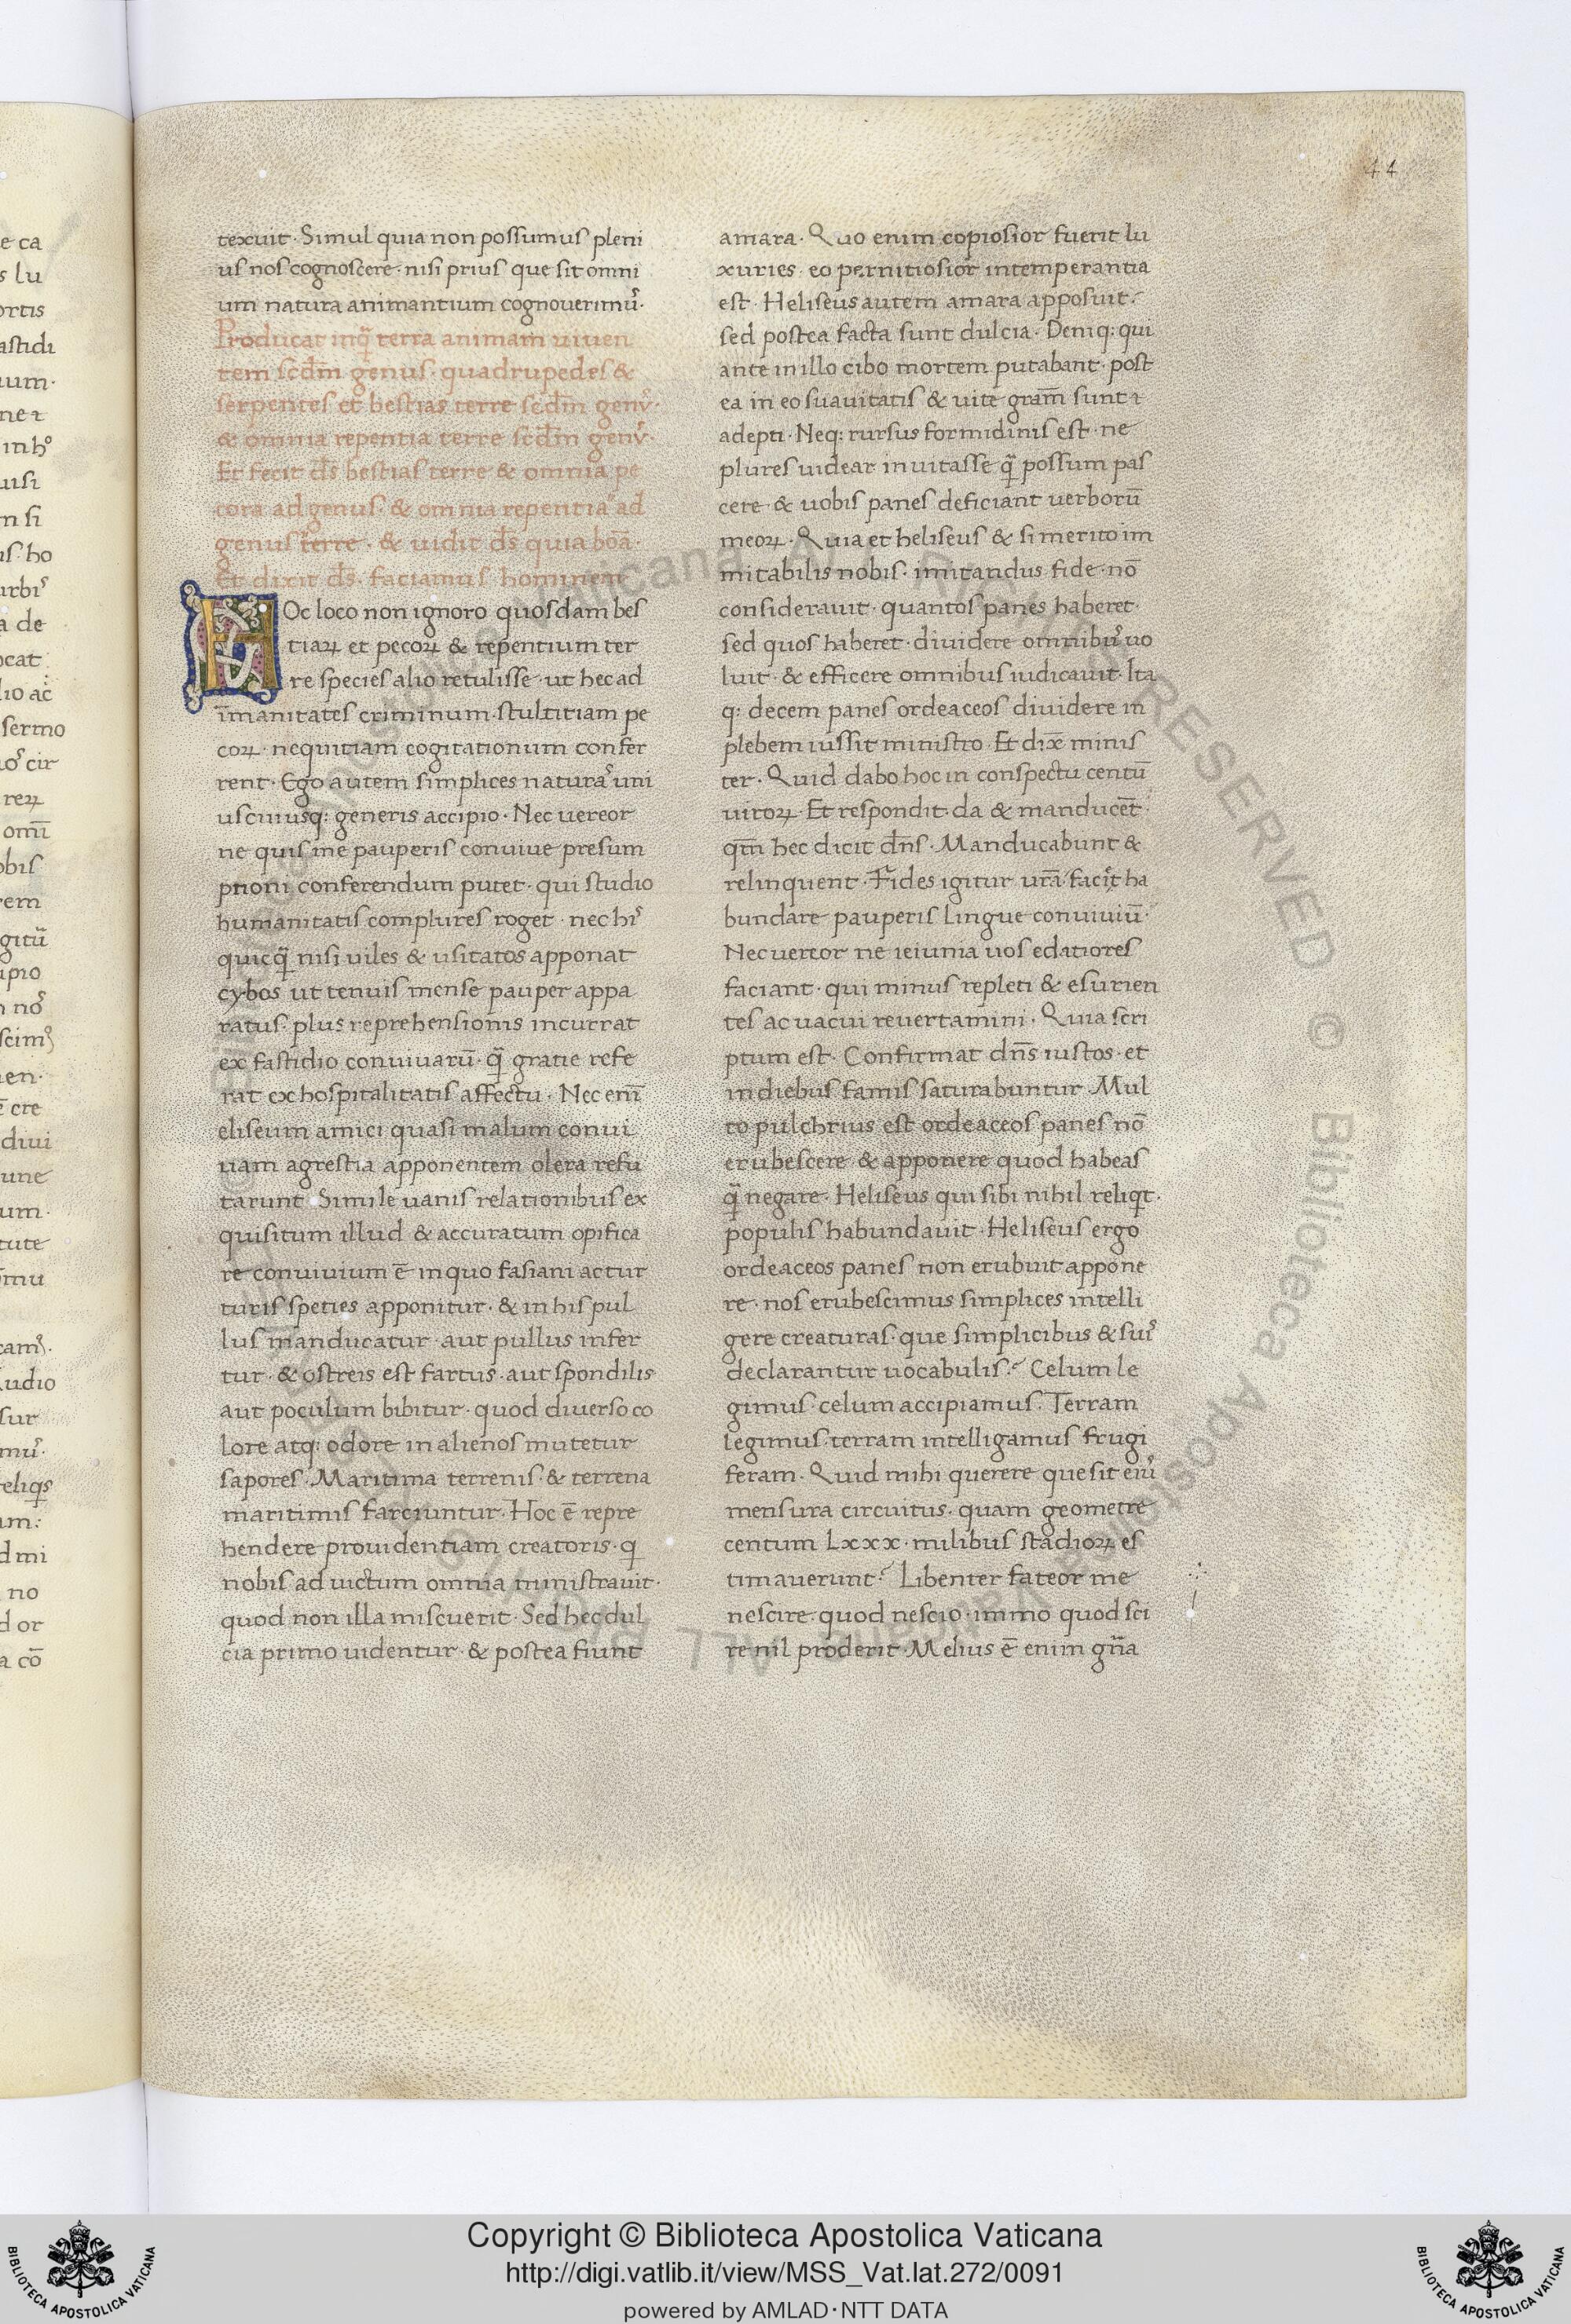 44
texuit· Simul quia non possumus pleni
us nos cognoscere· nisi prius que sit omni
um natura animantium cognouerimꝰ·
Producat inq̄ terra animam uiuen
tem scd̄m genus· quadrupedes &
serpentes et bestias terre scd̄m genꝰ·
& omnia repentia terre scd̄m genꝰ·
Et fecit d̄s bestias terre & omnia pe
cora ad genus· & omnia repentia ad
genus terre· & uidit d̄s quia boā·
Et dixit d̄s· faciamus hominem
HOc loco non ignoro quosdam bes
tiaꝝ et pecoꝝ & repentium ter
re species alio retulisse· ut hec ad
īmanitates criminum· stultitiam pe
coꝝ· nequitiam cogitationum confer
rent· Ego autem simplices naturas uni
uscuiusq: generis accipio· Nec uereor
ne quis me pauperis conuiue presum
ptioni conferendum putet· qui studio
humanitatis complures roget· nec his
quicq̄ nisi uiles & usitatos apponat
cybos ut tenuis mense pauper appa
ratus· plus reprehensionis incurrat
ex fastidio conuiuarū· q̄ gratie refe
rat ex hospitalitatis affectu· Nec eni̅
eliseum amici quasi malum conui
uam agrestia apponentem olera refu
tarunt· Simile uanis relationibus ex
quisitum illud & accuratum opifica
re conuiuium ē in quo fasiani ac tur
turis speties apponitur· & in his pul
lus manducatur· aut pullus infer
tur· & ostreis est fartus· aut spondilis
aut poculum bibitur· quod diuerso co
lore atq: odore in alienos mutetur
sapores· Maritima terrenis· & terrena
maritimis farciuntur· Hoc ē repre
hendere prouidentiam creatoris· q
nobis ad uictum omnia ministrauit·
quod non illa miscuerit· Sed hec dul
cia primo uidentur· & postea fiunt
amara· Quo enim copiosior fuerit lu
xuries· eo pernitiosior intemperantia
est· Heliseus autem amara apposuit·
sed postea facta sunt dulcia· Deniq: qui
ante in illo cibo mortem putabant· post
ea in eo suauitatis & uite gram̄ sunt
adepti· Neq: rursus formidinis est· ne
plures uidear inuitasse q̄ possum pas
cere· & uobis panes deficiant uerborū
meoꝝ· Quia et heliseus & si merito im
mitabilis nobis· imitandus fide· nō
considerauit· quantos panes haberet·
sed quos haberet· diuidere omnibꝰ uo
luit· & efficere omnibus iudicauit· Ita
q: decem panes ordeaceos diuidere in
plebem iussit ministro· Et dix̄ minis
ter· Quid dabo hoc in conspectu centū
uiroꝝ· Et respondit· da & manducēt·
qm̄ hec dicit dn̄s· Manducabunt &
relinquent· Fides igitur ur̄a facit ha
bundare pauperis lingue conuiuiū·
Nec uereor ne ieiunia uos edatiores
faciant· qui minus repleti & esurien
tes ac uacui reuertamini· Quia scri
ptum est· Confirmat dn̄s iustos· et
in diebus famis saturabuntur· Mul
to pulchrius est ordeaceos panes nō
erubescere & apponere quod habeas
q̄ negare· Heliseus qui sibi nihil reliqt·
populis habundauit· Heliseus ergo
ordeaceos panes non erubuit appone
re· nos erubescimus simplices intelli
gere creaturas· que simplicibus & suis
declarantur uocabulis? Celum le
gimus· celum accipiamus· Terram
legimus· terram intelligamus frugi
feram· Quid mihi querere que sit eiꝰ
mensura circuitus· quam geometre
centum Lxxx· milibus stadioꝝ es
timauerunt? Libenter fateor me
nescire quod nescio· immo quod sci
re nil proderit· Melius ē enim gn̄a
Copyright © Biblioteca Apostolica Vaticana
http://digi.vatlib.it/view/MSS_Vat.lat.272/0091
powered by AMLAD·NTT DATA
BIBLIOTECA APOSTOLICA VATICANA
BIBLIOTECA APOSTOLICA VATICANA